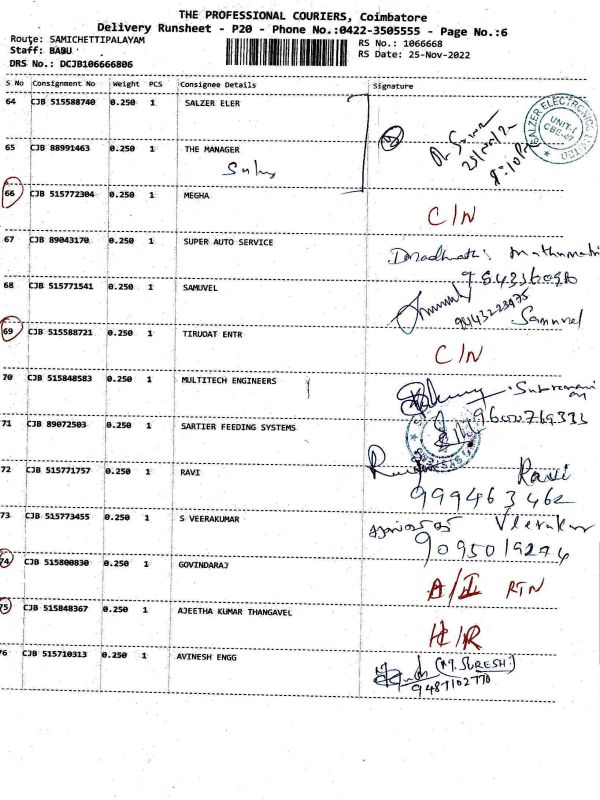 THE PROFESSIONAL COURIERS, Coimbatore
Delivery Runsheet - P20 - Phone No.:0422-3505555 - Page No.:6
Route: SAMICHETTIPALAYAM
RS No.: 1066668
Staff: BABU
RS Date: 25-Nov-2022
DRS No.: DCJB106666806
S No Consignment No Weight PCS Consignee Details Signature
64 CJB 515588740 0.250 1 SALZER ELER
SALZER ELECTRONICS LIMITED
UNIT-I
65 CJB 88991463 0.250 1 THE MANAGER
66 CJB 515772304 0.250 1 MEGHA
C/N
67 CJB 89043170 0.250 1 SUPER AUTO SERVICE
68 CJB 515771541 0.250 1 SAMUVEL
9843223975
Samuvel
69 CJB 515588721 0.250 1 TIRUOAT ENTR
C/N
70 CJB 515848583 0.250 1 MULTITECH ENGINEERS
71 CJB 89072503 0.250 1 SARTIER FEEDING SYSTEMS
9600769333
72 CJB 515771757 0.250 1 RAVI
Ravi
999463462
73 CJB 515773455 0.250 1 S VEERAKUMAR
Veerakumar
9095019274
74 CJB 515800830 0.250 1 GOVINDARAJ
A/I RTN
75 CJB 515848367 0.250 1 AJEETHA KUMAR THANGAVEL
H/R
76 CJB 515710313 0.250 1 AVINESH ENGG
(M. SURESH)
9487102770